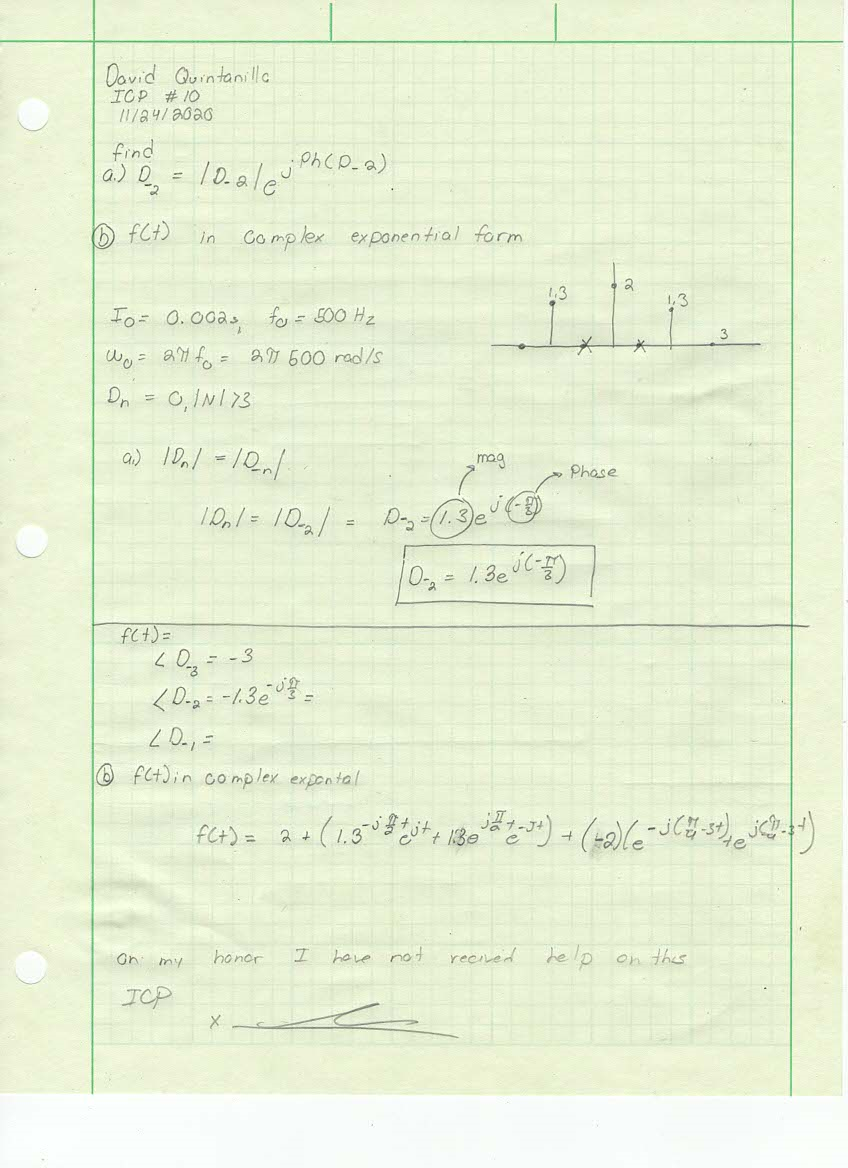 David Quintanilla
ICP #10
11/24/2020
find
a.) D_-2 = |D-2|e^jPh(D-2)
ⓑ f(t) in complex exponential form
1,3 2 1,3
3
I0 = 0.002s, f0 = 500 Hz
ω0 = 2π f0 = 2π 500 rad/s
Dn = 0, |N| > 3
a.) |Dn| = |D-n|
mag
Phase
|Dn| = |D-2| = D-2 = 1.3 e^j(-π/3)
D-2 = 1.3e^j(-π/3)
f(t) =
∠D-3 = -3
∠D-2 = -1.3e^-jπ/3 =
∠D-1 =
ⓑ f(t) in complex expontal
f(t) = 2 + (1.3^-jπ/2+ e^jt + 1.3e^jπ/2+ e^-jt) + (-2)(e^-j(π/4-3t) + e^j(π/4-3t))
on my honor I have not recived help on this
ICP
x